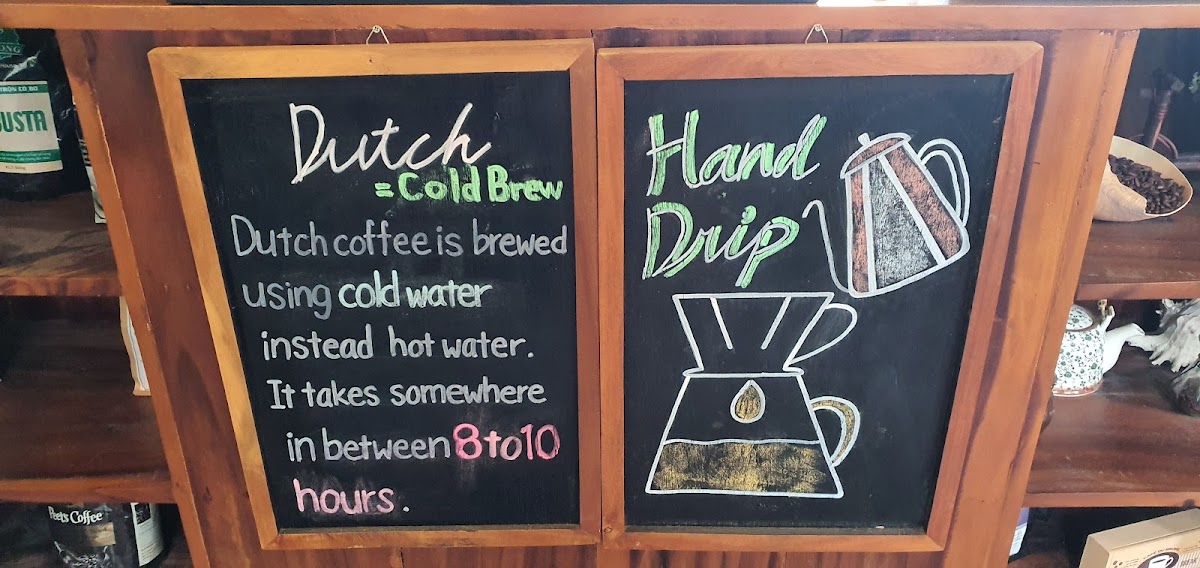 Dutch
= Cold Brew
Dutch coffee is brewed
using cold water
instead hot water.
It takes somewhere
in between 8 to 10
hours.
Hand
Drip
Peet's Coffee